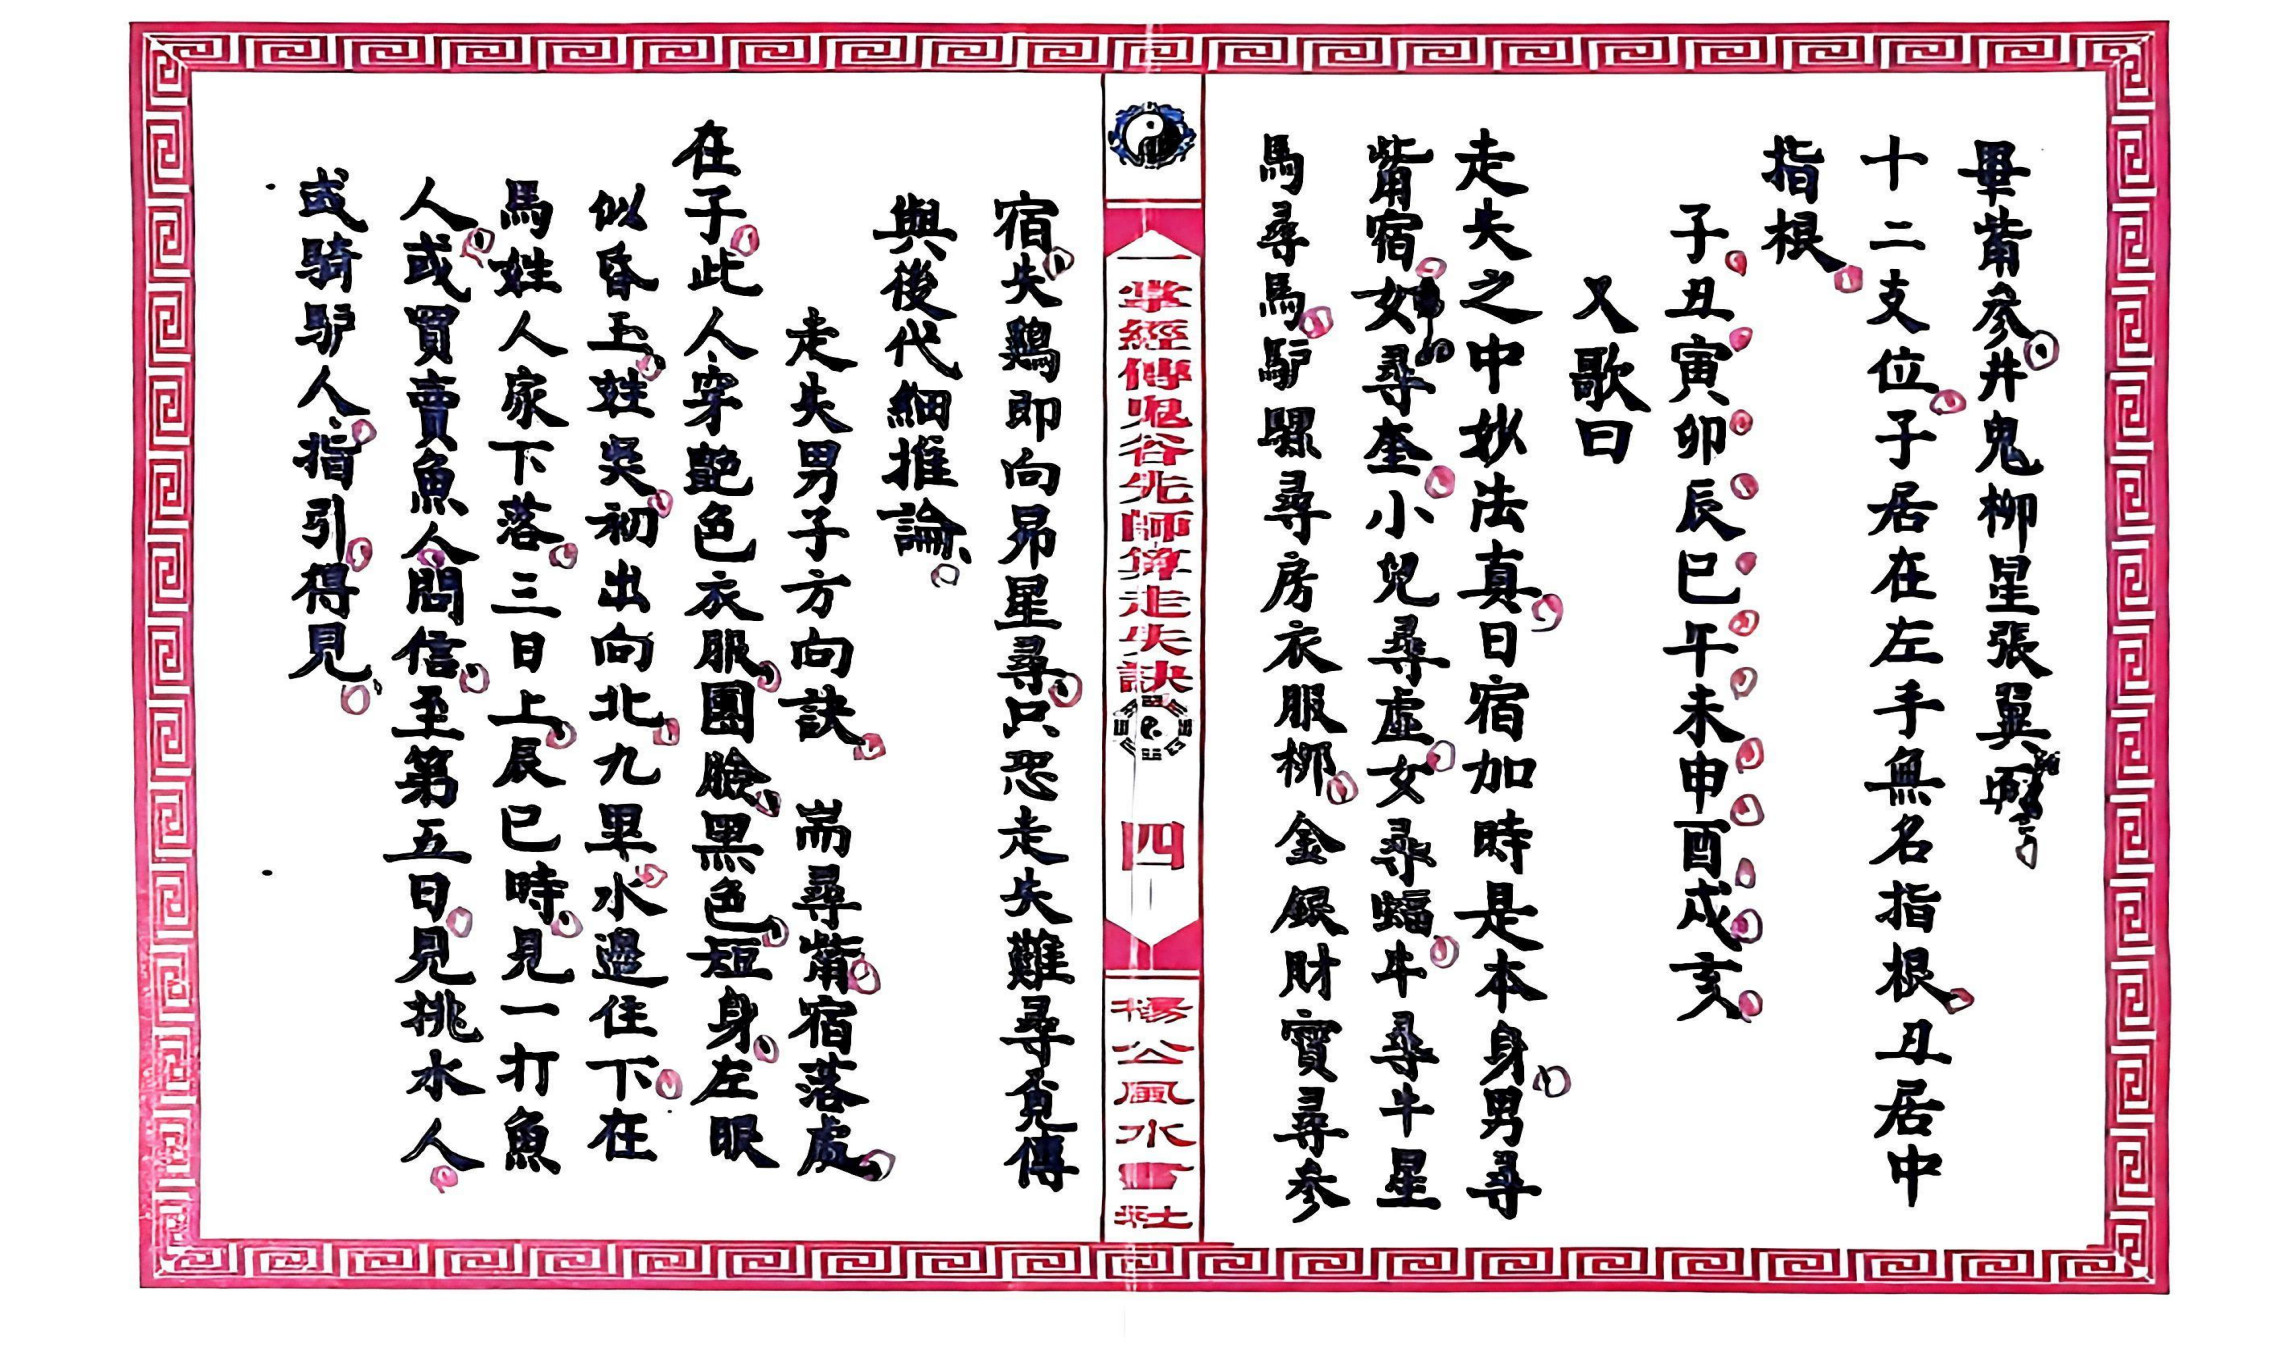 畢觜參井鬼柳星張翼
十二支位子居在左手無名指根丑居中
指根
子丑寅卯辰巳午未申酉戌亥
又歌曰
走失之中妙法真日宿加時是本身男尋
觜宿女尋奎小兒尋虛女尋蝠牛尋牛星
馬尋馬馿騾尋房衣服柳金銀財寶尋參
一掌經傳鬼谷先師算走失訣
四
楊公風水書社
宿失鷄即向昴星尋只恐走失難尋覓傳
與後代細推論
走失男子方向訣 耑尋觜宿落處
在子此人穿艶色衣服團臉黑色短身左眼
似昏玉姓吳初出向北九里水邊住下在
馬姓人家下落三日上辰巳時見一打魚
人或買賣魚人問信至第五日見挑水人
或騎馿人指引得見